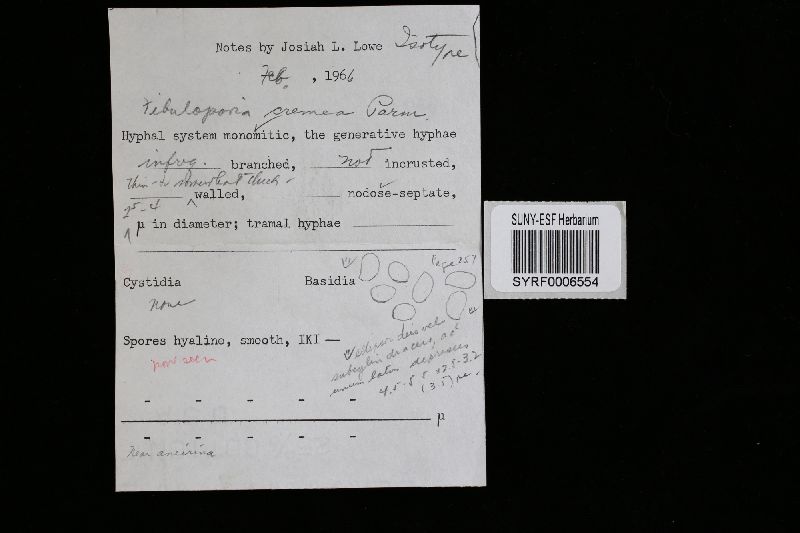 Notes by Josiah L. Lowe Isotype
Feb. , 1966
Fibuloporia cremea Parm.
Hyphal system monomitic, the generative hyphae
infreq. branched, not incrusted,
thin- to somewhat thick-
walled, nodose-septate,
2.5-4
µ in diameter; tramal hyphae
Cystidia Basidia
Page 257
none
Spores hyaline, smooth, IKI —
poor seen
"ellipsoideis vel
subcylindraceis, ad
unum latus depressis
4.5-5.5 x 2.5-3.2
(3.5) µ.
- - - - -
µ
- - - - -
Near aneirina
SUNY-ESF Herbarium
SYRF0006554